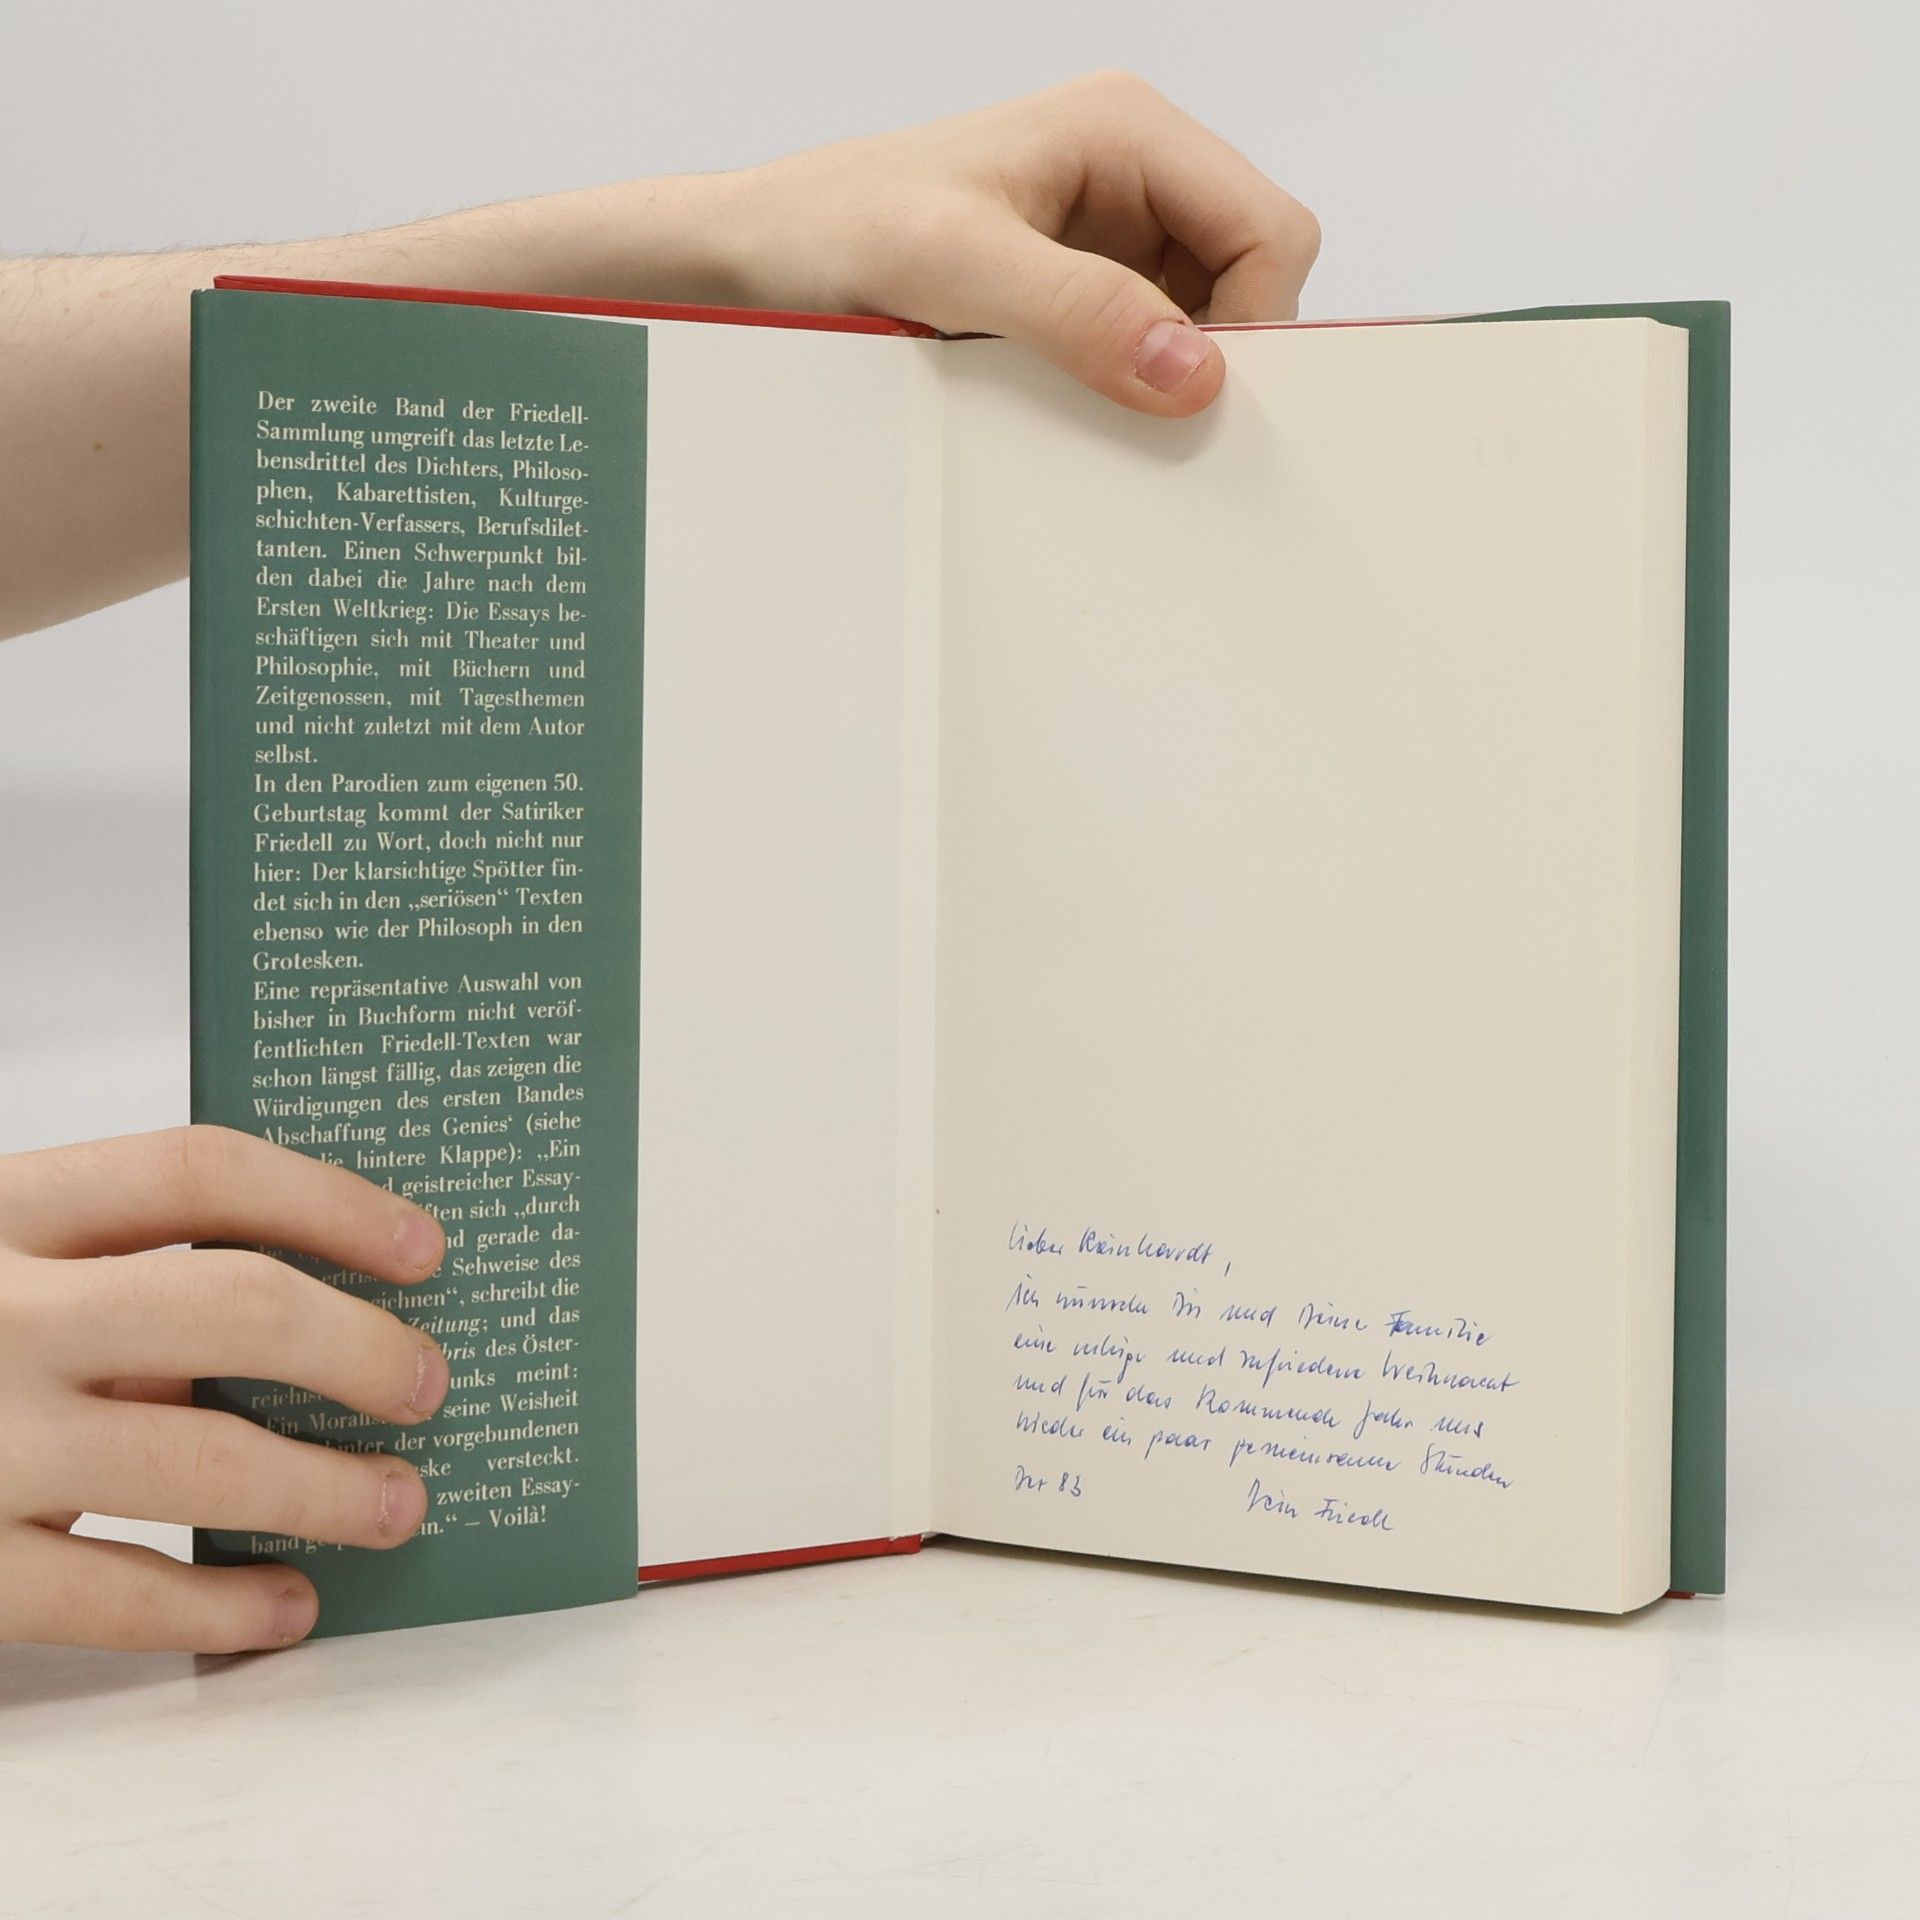 Der zweite Band der Friedell-
Sammlung umgreift das letzte Le-
bensdrittel des Dichters, Philoso-
phen, Kabarettisten, Kulturge-
schichten-Verfassers, Berufsdilet-
tanten. Einen Schwerpunkt bil-
den dabei die Jahre nach dem
Ersten Weltkrieg: Die Essays be-
schäftigen sich mit Theater und
Philosophie, mit Büchern und
Zeitgenossen, mit Tagesthemen
und nicht zuletzt mit dem Autor
selbst.
In den Parodien zum eigenen 50.
Geburtstag kommt der Satiriker
Friedell zu Wort, doch nicht nur
hier: Der klarsichtige Spötter fin-
det sich in den „seriösen“ Texten
ebenso wie der Philosoph in den
Grotesken.
Eine repräsentative Auswahl von
bisher in Buchform nicht veröf-
fentlichten Friedell-Texten war
schon längst fällig, das zeigen die
Würdigungen des ersten Bandes
Abschaffung des Genies‘ (siehe
die hintere Klappe): „Ein
geistreicher Essay-
sich „durch
gerade da-
Sehweise des
schreibt die
Zeitung; und das
des Öster-
meint:
Ein seine Weisheit
hinter der vorgebundenen
versteckt.
zweiten Essay-
band – Voilà!
Lieber Reinhardt,
ich wünsche Dir und Deine Familie
eine ruhige und zufriedene Weihnacht
und für das kommende Jahr uns
wieder ein paar gemeinsame Stunden
83 Dein Friedl